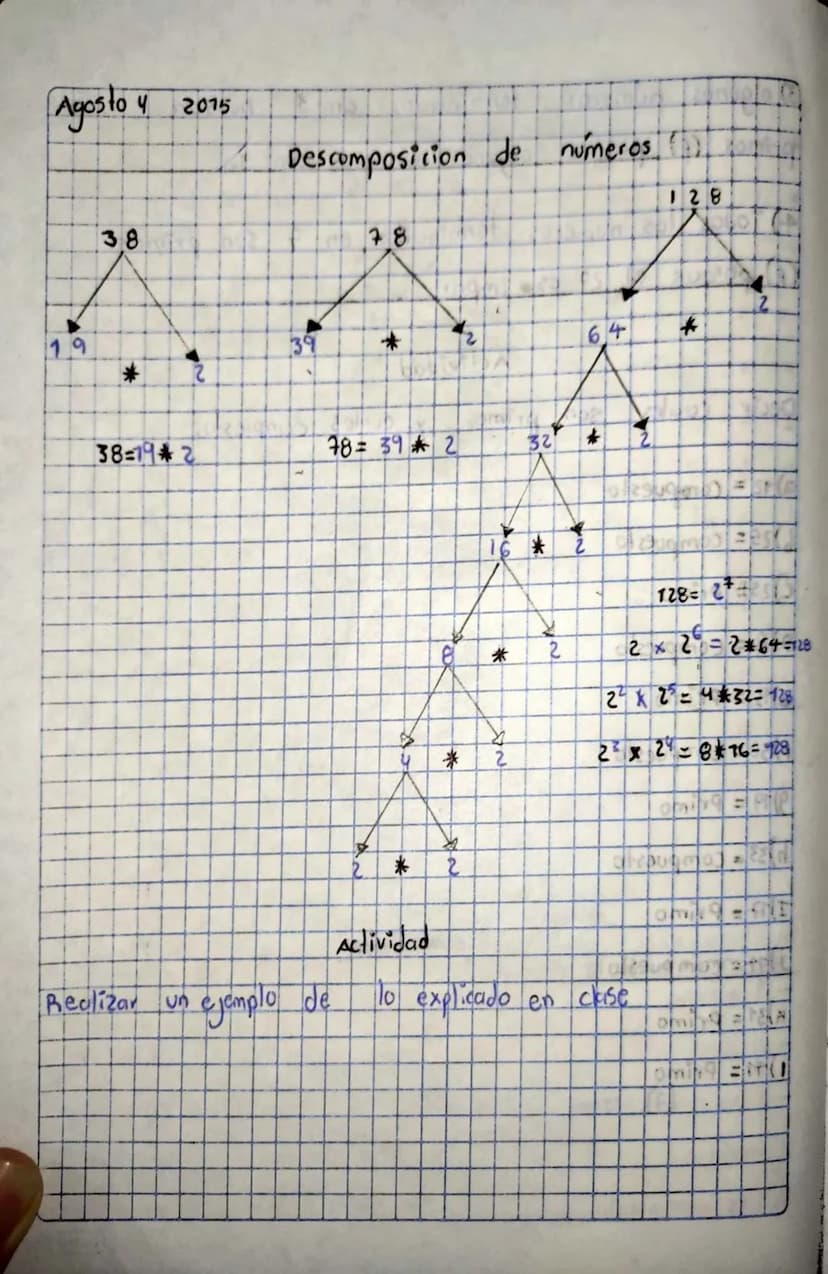 Agosto 4 2015
Descomposicion de números
38
19 * 2
38=19*2
78
39 * 2
78= 39 * 2
128
64 * 2
32 * 2
16 * 2
8 * 2
4 * 2
2 * 2
128= 2⁷
2 x 2⁶ = 2*64=128
2² x 2⁵ = 4*32= 128
2² x 2⁴ = 8*16=128
Actividad
Realizar un ejemplo de lo explicado en clase